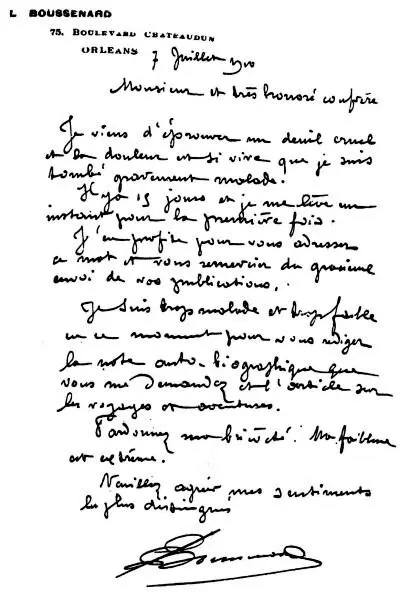 L BOUSSENARD
75, BOULEVARD CHATEAUDUN
ORLÉANS 7 Juillet 1910
Monsieur et très honoré confrère
Je viens d'éprouver un deuil cruel
et la douleur est si vive que je suis
tombé gravement malade.
Il y a 15 jours et je me lève un
instant pour la première fois.
J'en profite pour vous adresser
ce mot et vous remercier du gracieux
envoi de vos publications.
Je suis trop malade et trop faible
en ce moment pour vous rédiger
la note auto-biographique que
vous me demandez et l'article sur
les voyages et aventures.
Pardonnez ma brièveté. Ma faiblesse
est extrême.
Veuillez agréer mes sentiments
les plus distingués
L Boussenard